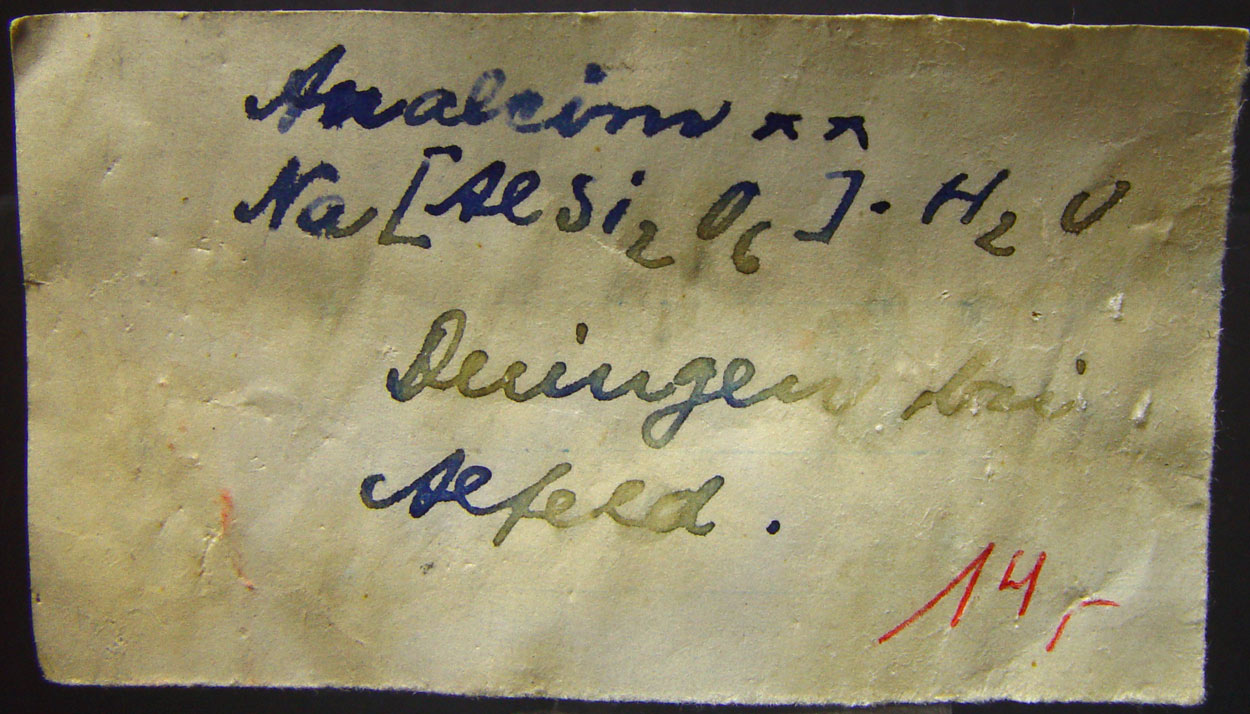 Analcim xx
Na[AlSi₂O₆]·H₂O
Duingen bei
Alfeld.
14,-